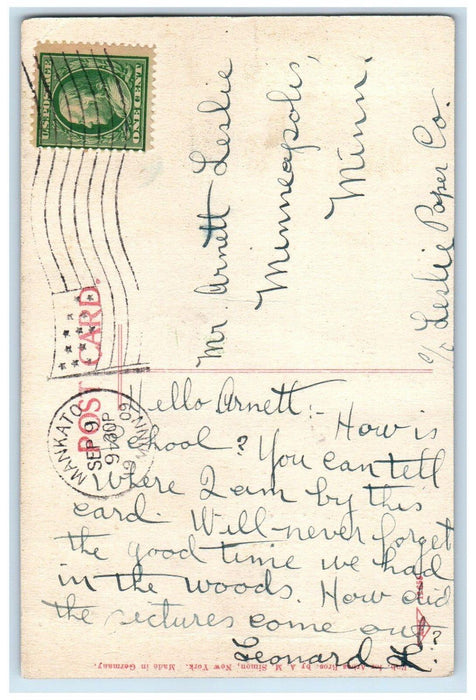 U.S.POSTAGE
ONE CENT
POST CARD.
MANKATO
MINN.
SEP 9
9 30P
09
Mr. Arnett Leslie
Minneapolis,
Minn.
c/o Leslie Paper Co.
Hello Arnett:- How is
school? You can tell
where I am by this
card. Will never forget
the good time we had
in the woods. How did
the pictures come out?
Leonard
Bros. by A. M. Simon, New York. Made in Germany.